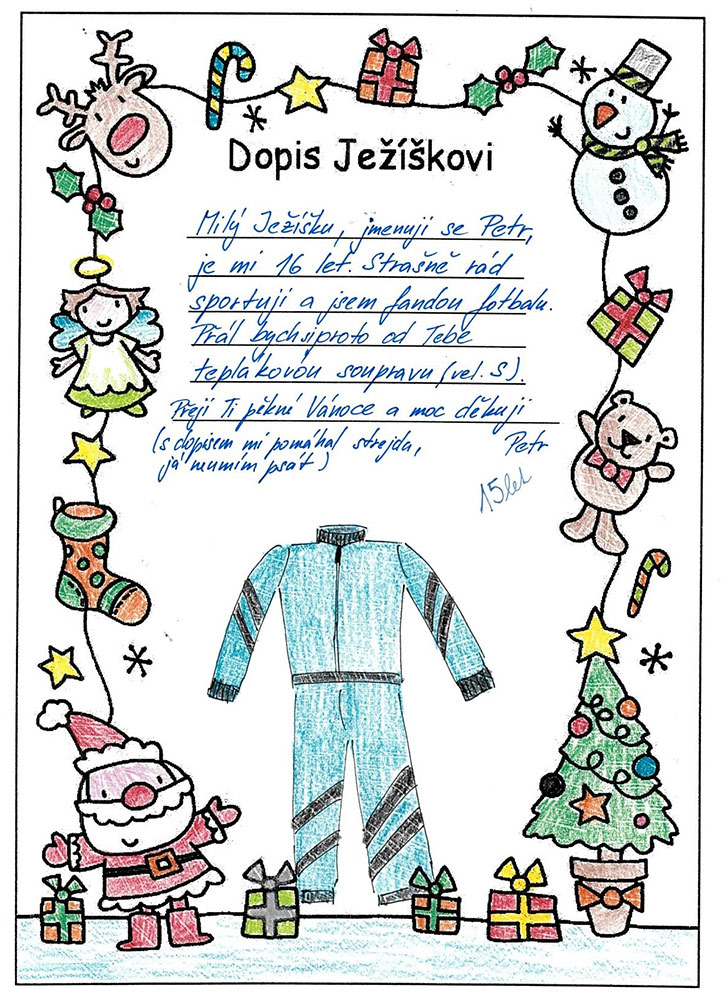 Dopis Ježíškovi
Milý Ježíšku, jmenuji se Petr,
je mi 16 let. Strašně rád
sportuji a jsem fandou fotbalu.
Přál bychsiproto od Tebe
teplákovou soupravu (vel. S).
Přeji Ti pěkné Vánoce a moc děkuji
(s dopisem mi pomáhal strejda, Petr
já neumím psát)
15 let